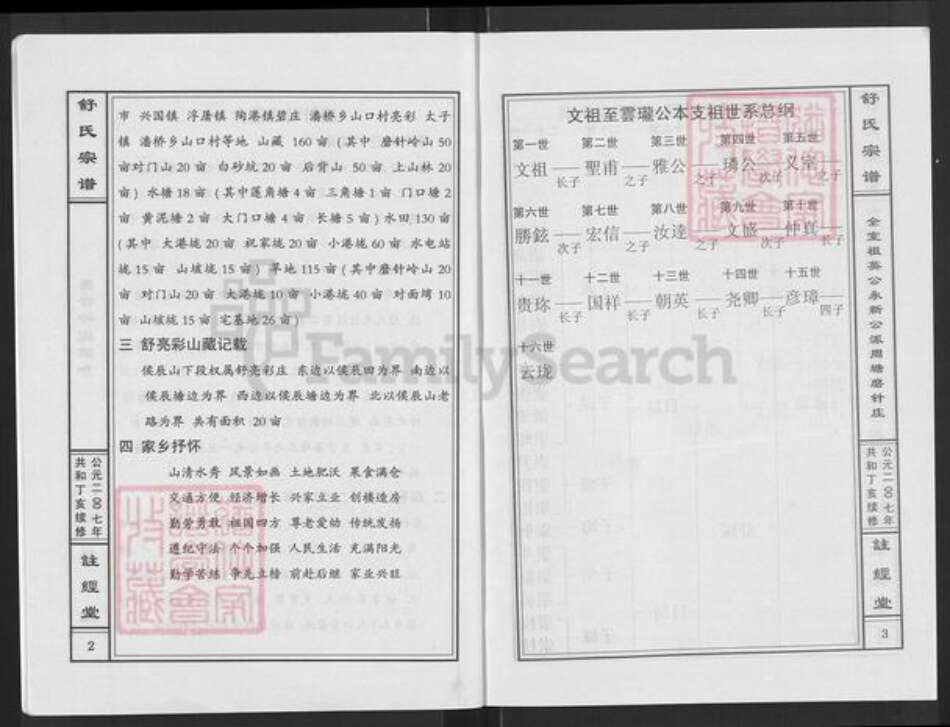 舒氏宗谱
市 兴国镇 浮屠镇 陶港镇碧庄 潘桥乡山口村亮彩 太子
镇 潘桥乡山口村等地 山藏 160 亩 (其中 磨针岭山 50
亩对门山 20 亩 白砂坑 20 亩 后背山 50 亩 上山林 20
亩) 水塘 18 亩 (其中莲角塘 4 亩 三角塘 1 亩 门口塘 2
亩 黄泥塘 2 亩 大门口塘 4 亩 长塘 5 亩) 水田 130 亩
(其中 大港垅 20 亩 祝家垅 20 亩 小港垅 60 亩 水电站
垅 15 亩 山坡垅 15 亩) 旱地 115 亩 (其中磨针岭山 20
亩 对门山 20 亩 大港垅 10 亩 小港垅 40 亩 对面塆 10
亩 山坡垅 15 亩 宅基地 26 亩)
三 舒亮彩山藏记载
侯辰山下段权属舒亮彩庄 东边以侯辰田为界 南边以
侯辰塘边为界 西边以侯辰塘边为界 北以侯辰山老
路为界 共有面积 20 亩
四 家乡抒怀
山清水秀 风景如画 土地肥沃 果食满仓
交通方便 经济增长 兴家立业 创楼造房
勤劳勇敢 祖国四方 尊老爱幼 传统发扬
遵纪守法 个个加强 人民生活 充满阳光
勤学苦练 争先立榜 前赴后继 家业兴旺
公元二00七年
共和丁亥续修
註經堂
2
文祖至雲瓏公本支祖世系总纲
第一世 第二世 第三世 第四世 第五世
文祖 聖甫 雅公 璘公 义宗
长子 之子 之子 次子 之子
第六世 第七世 第八世 第九世 第十世
勝鉉 宏信 汝達 文盛 仲真
次子 之子 之子 次子 长子
十一世 十二世 十三世 十四世 十五世
贵珎 国祥 朝英 尧卿 彦璋
长子 长子 长子 长子 四子
十六世
云珑
舒氏宗谱
全室祖英公永新公派周塘磨针庄
公元二00七年
共和丁亥续修
註經堂
3
FamilySearch